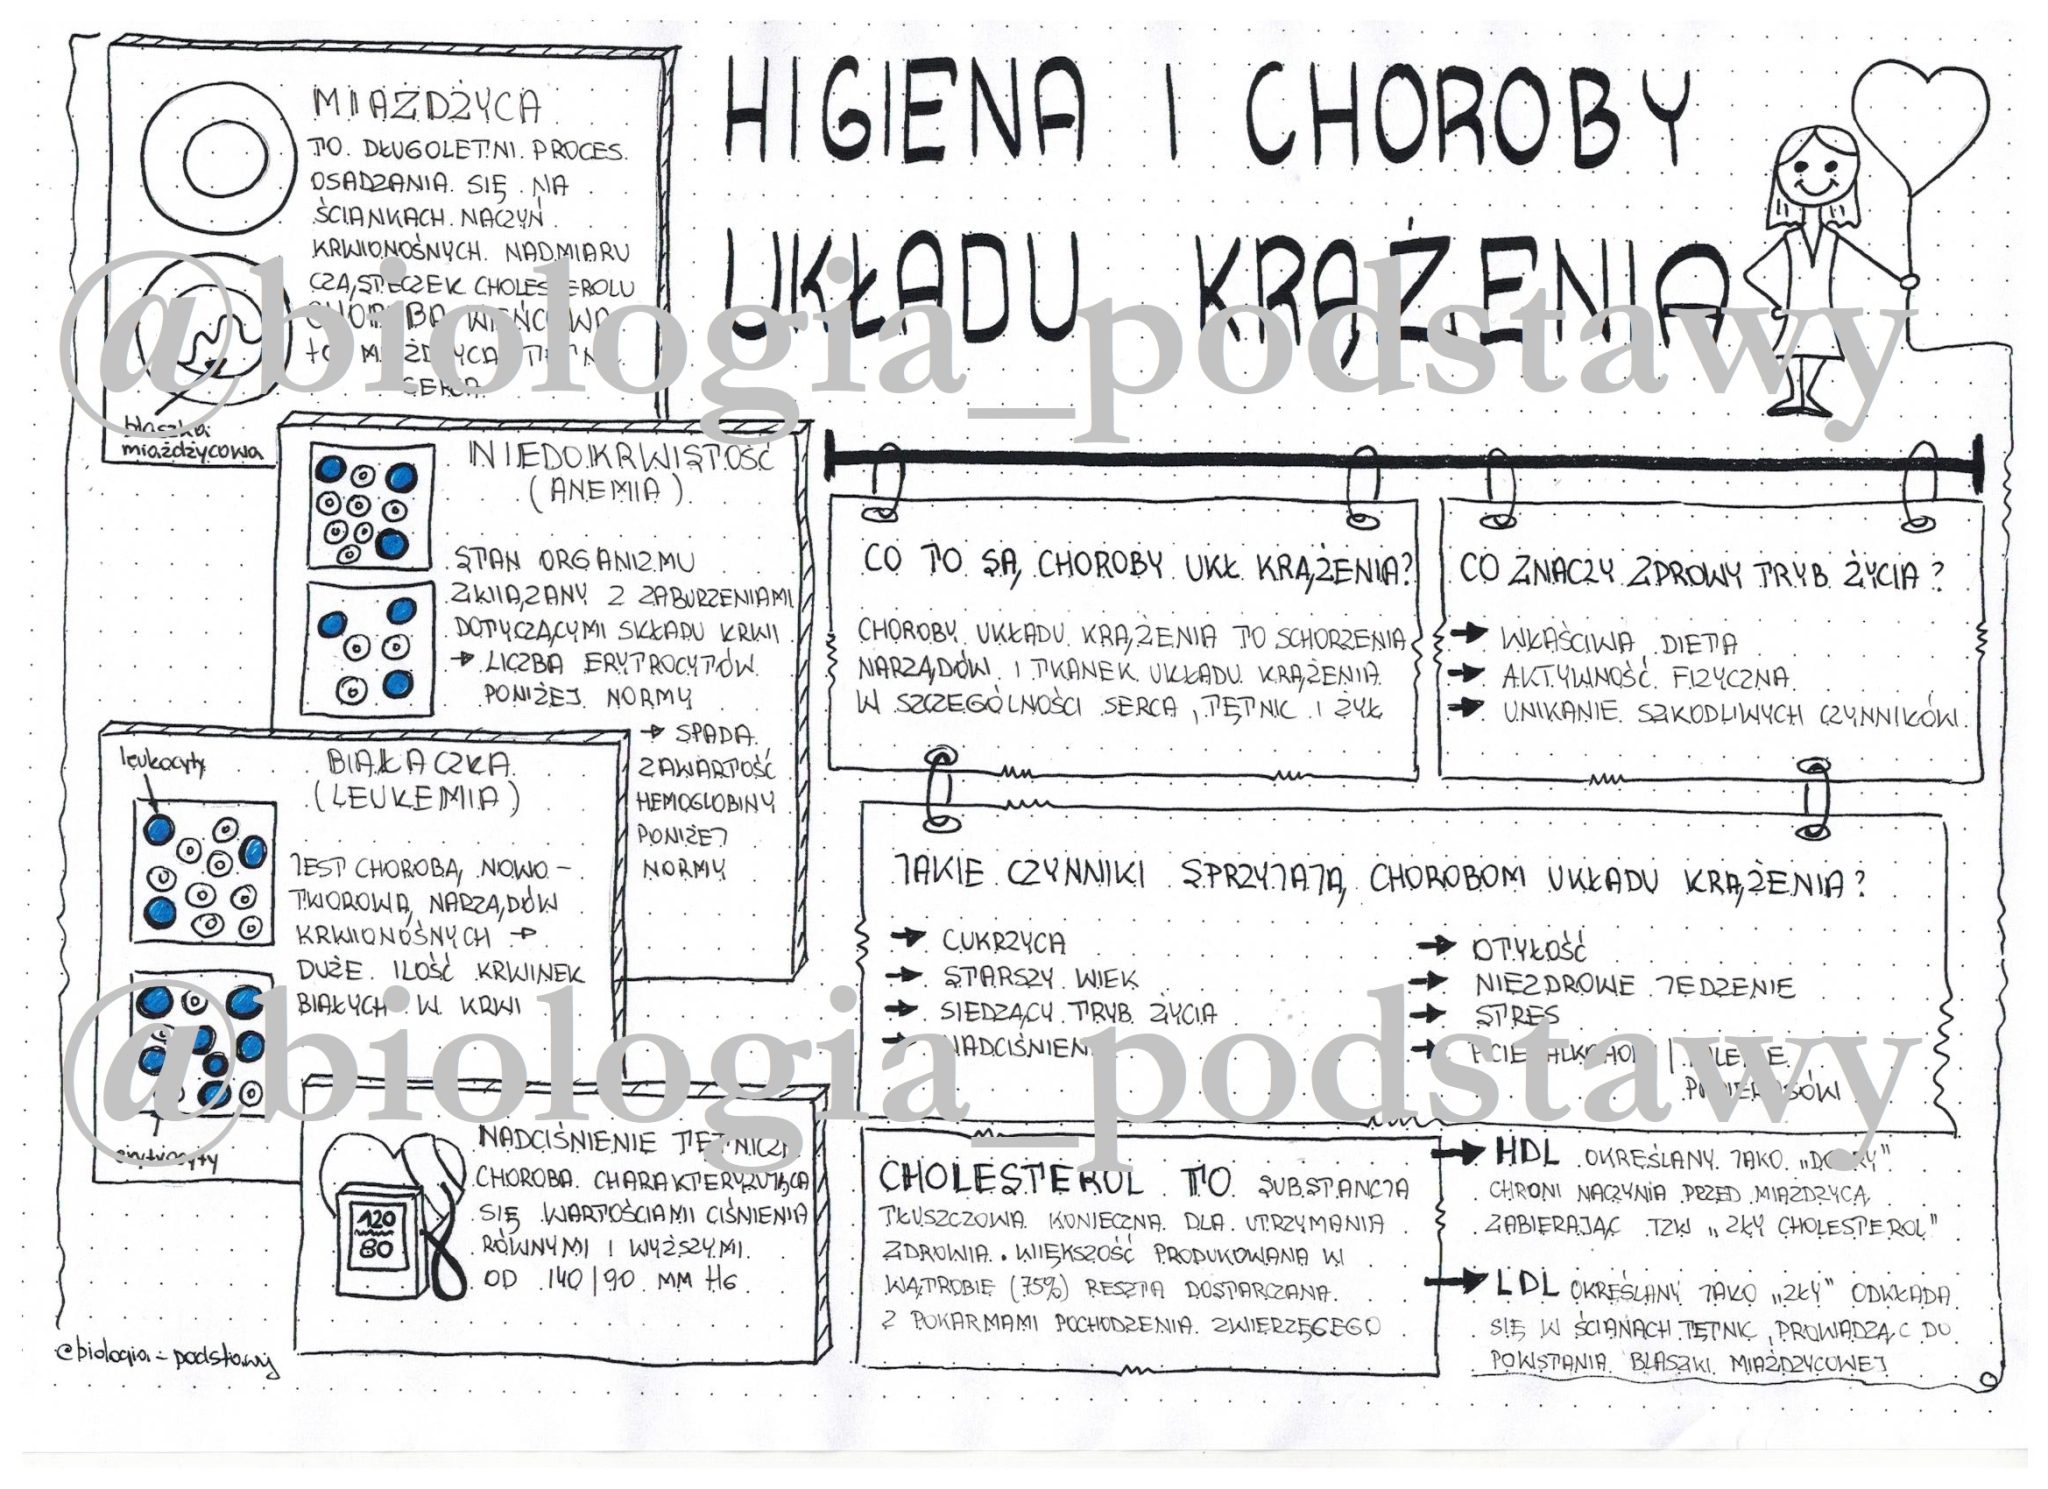 HIGIENA I CHOROBY
UKŁADU KRĄŻENIA
MIAŻDŻYCA
TO DŁUGOLETNI PROCES
OSADZANIA SIĘ NA
ŚCIANKACH NACZYŃ
KRWIONOŚNYCH NADMIARU
CZĄSTECZEK CHOLESTEROLU
CHOROBA WIEŃCOWA
to MIAŻDŻYCA TĘTNIC
SERCA
blaszka
miażdżycowa
NIEDOKRWISTOŚĆ
(ANEMIA)
STAN ORGANIZMU
ZWIĄZANY Z ZABURZENIAMI
DOTYCZĄCYMI SKŁADU KRWI
→ LICZBA ERYTROCYTÓW
PONIŻEJ NORMY
→ SPADA
ZAWARTOŚĆ
HEMOGLOBINY
PONIŻEJ
NORMY
leukocyty
BIAŁACZKA
(LEUKEMIA)
JEST CHOROBĄ NOWO-
TWOROWĄ NARZĄDÓW
KRWIONOŚNYCH →
DUŻE ILOŚĆ KRWINEK
BIAŁYCH W KRWI
erytrocyty
NADCIŚNIENIE TĘTNICZE
CHOROBA CHARAKTERYZUJĄCA
SIĘ WARTOŚCIAMI CIŚNIENIA
RÓWNYMI I WYŻSZYMI
OD 140/90 MM HG
120
80
@biologia_podstawy
CO TO SĄ CHOROBY UKŁ KRĄŻENIA?
CHOROBY UKŁADU KRĄŻENIA TO SCHORZENIA
NARZĄDÓW I TKANEK UKŁADU KRĄŻENIA
W SZCZEGÓLNOŚCI SERCA, TĘTNIC I ŻYŁ
CO ZNACZY ZDROWY TRYB ŻYCIA?
→ WŁAŚCIWA DIETA
→ AKTYWNOŚĆ FIZYCZNA
→ UNIKANIE SZKODLIWYCH CZYNNIKÓW
JAKIE CZYNNIKI SPRZYJAJĄ CHOROBOM UKŁADU KRĄŻENIA?
→ CUKRZYCA
→ STARSZY WIEK
→ SIEDZĄCY TRYB ŻYCIA
→ NADCIŚNIENIE
→ OTYŁOŚĆ
→ NIEZDROWE JEDZENIE
→ STRES
→ PICIE ALKOHOLU | PALENIE
PAPIEROSÓW
CHOLESTEROL TO SUBSTANCJA
TŁUSZCZOWA KONIECZNA DLA UTRZYMANIA
ZDROWIA. WIĘKSZOŚĆ PRODUKOWANA W
WĄTROBIE (75%) RESZTA DOSTARCZANA
Z POKARMAMI POCHODZENIA ZWIERZĘCEGO
→ HDL OKREŚLANY JAKO „DOBRY"
CHRONI NACZYNIA PRZED MIAŻDŻYCĄ
ZABIERAJĄC TZW „ZŁY CHOLESTEROL"
→ LDL OKREŚLANY JAKO „ZŁY" ODKŁADA
SIĘ W ŚCIANACH TĘTNIC, PROWADZĄC DO
POWSTANIA BLASZKI MIAŻDŻYCOWEJ
@biologia_podstawy
@biologia_podstawy